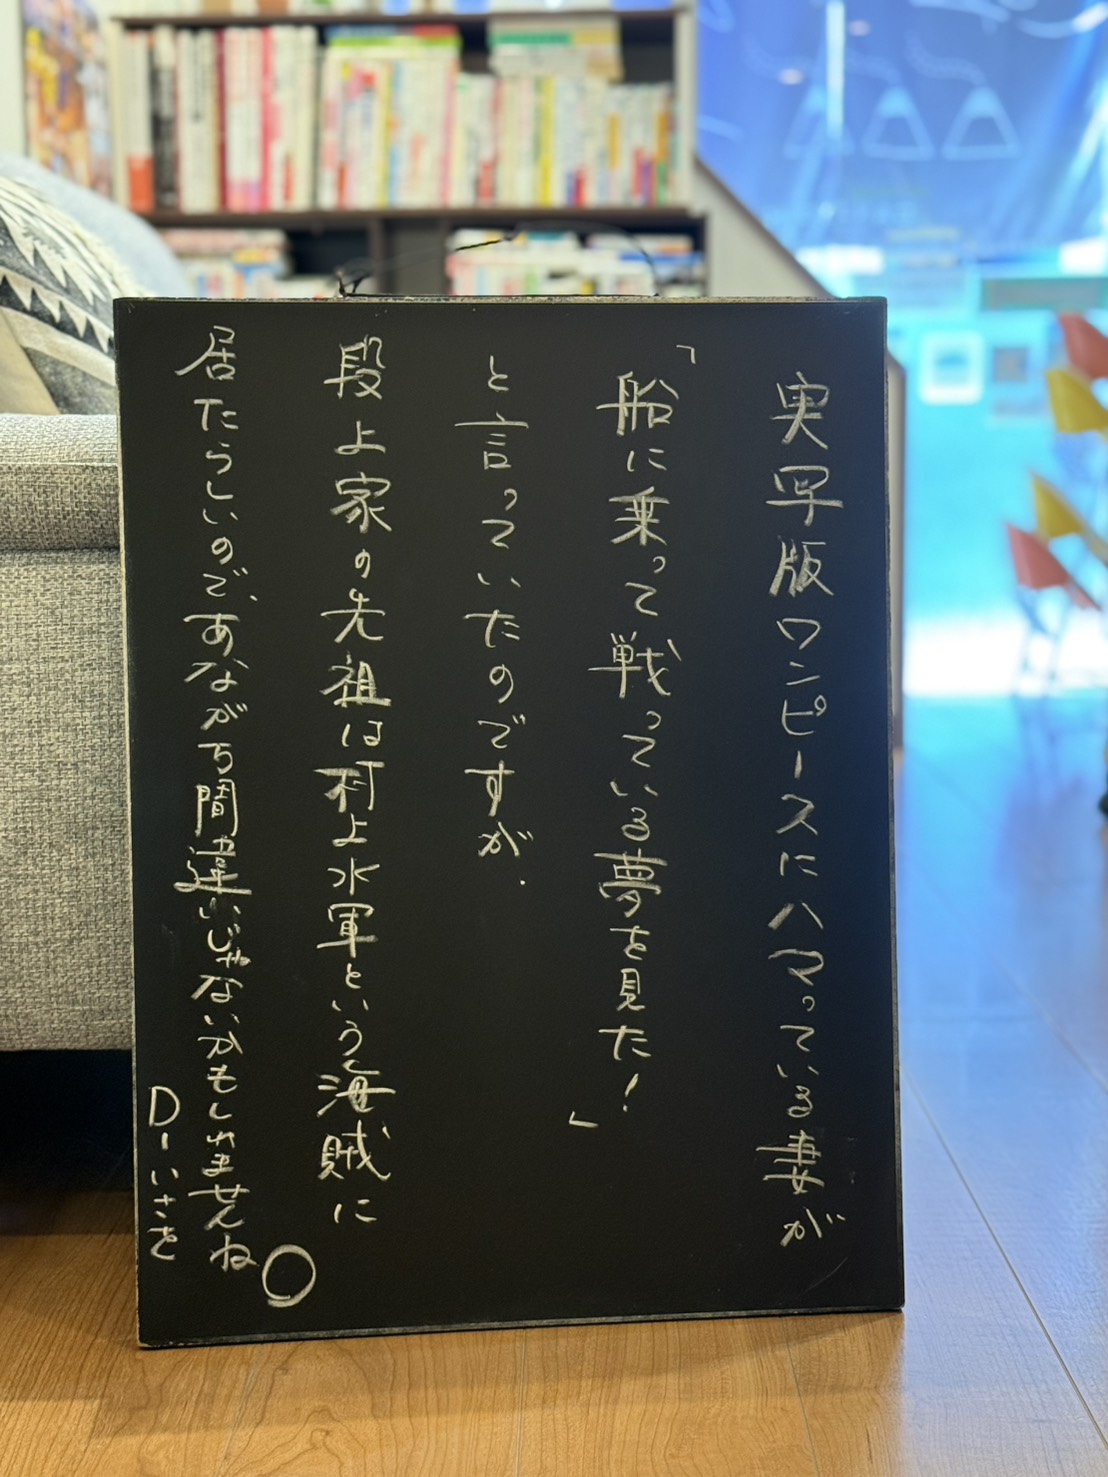 実写版ワンピースにハマっている妻が
「船に乗って戦っている夢を見た！」
と言っていたのですが、
段上家の先祖は村上水軍という海賊に
居たらしいので、あながち間違いじゃないかもしれませんね
D－いさを